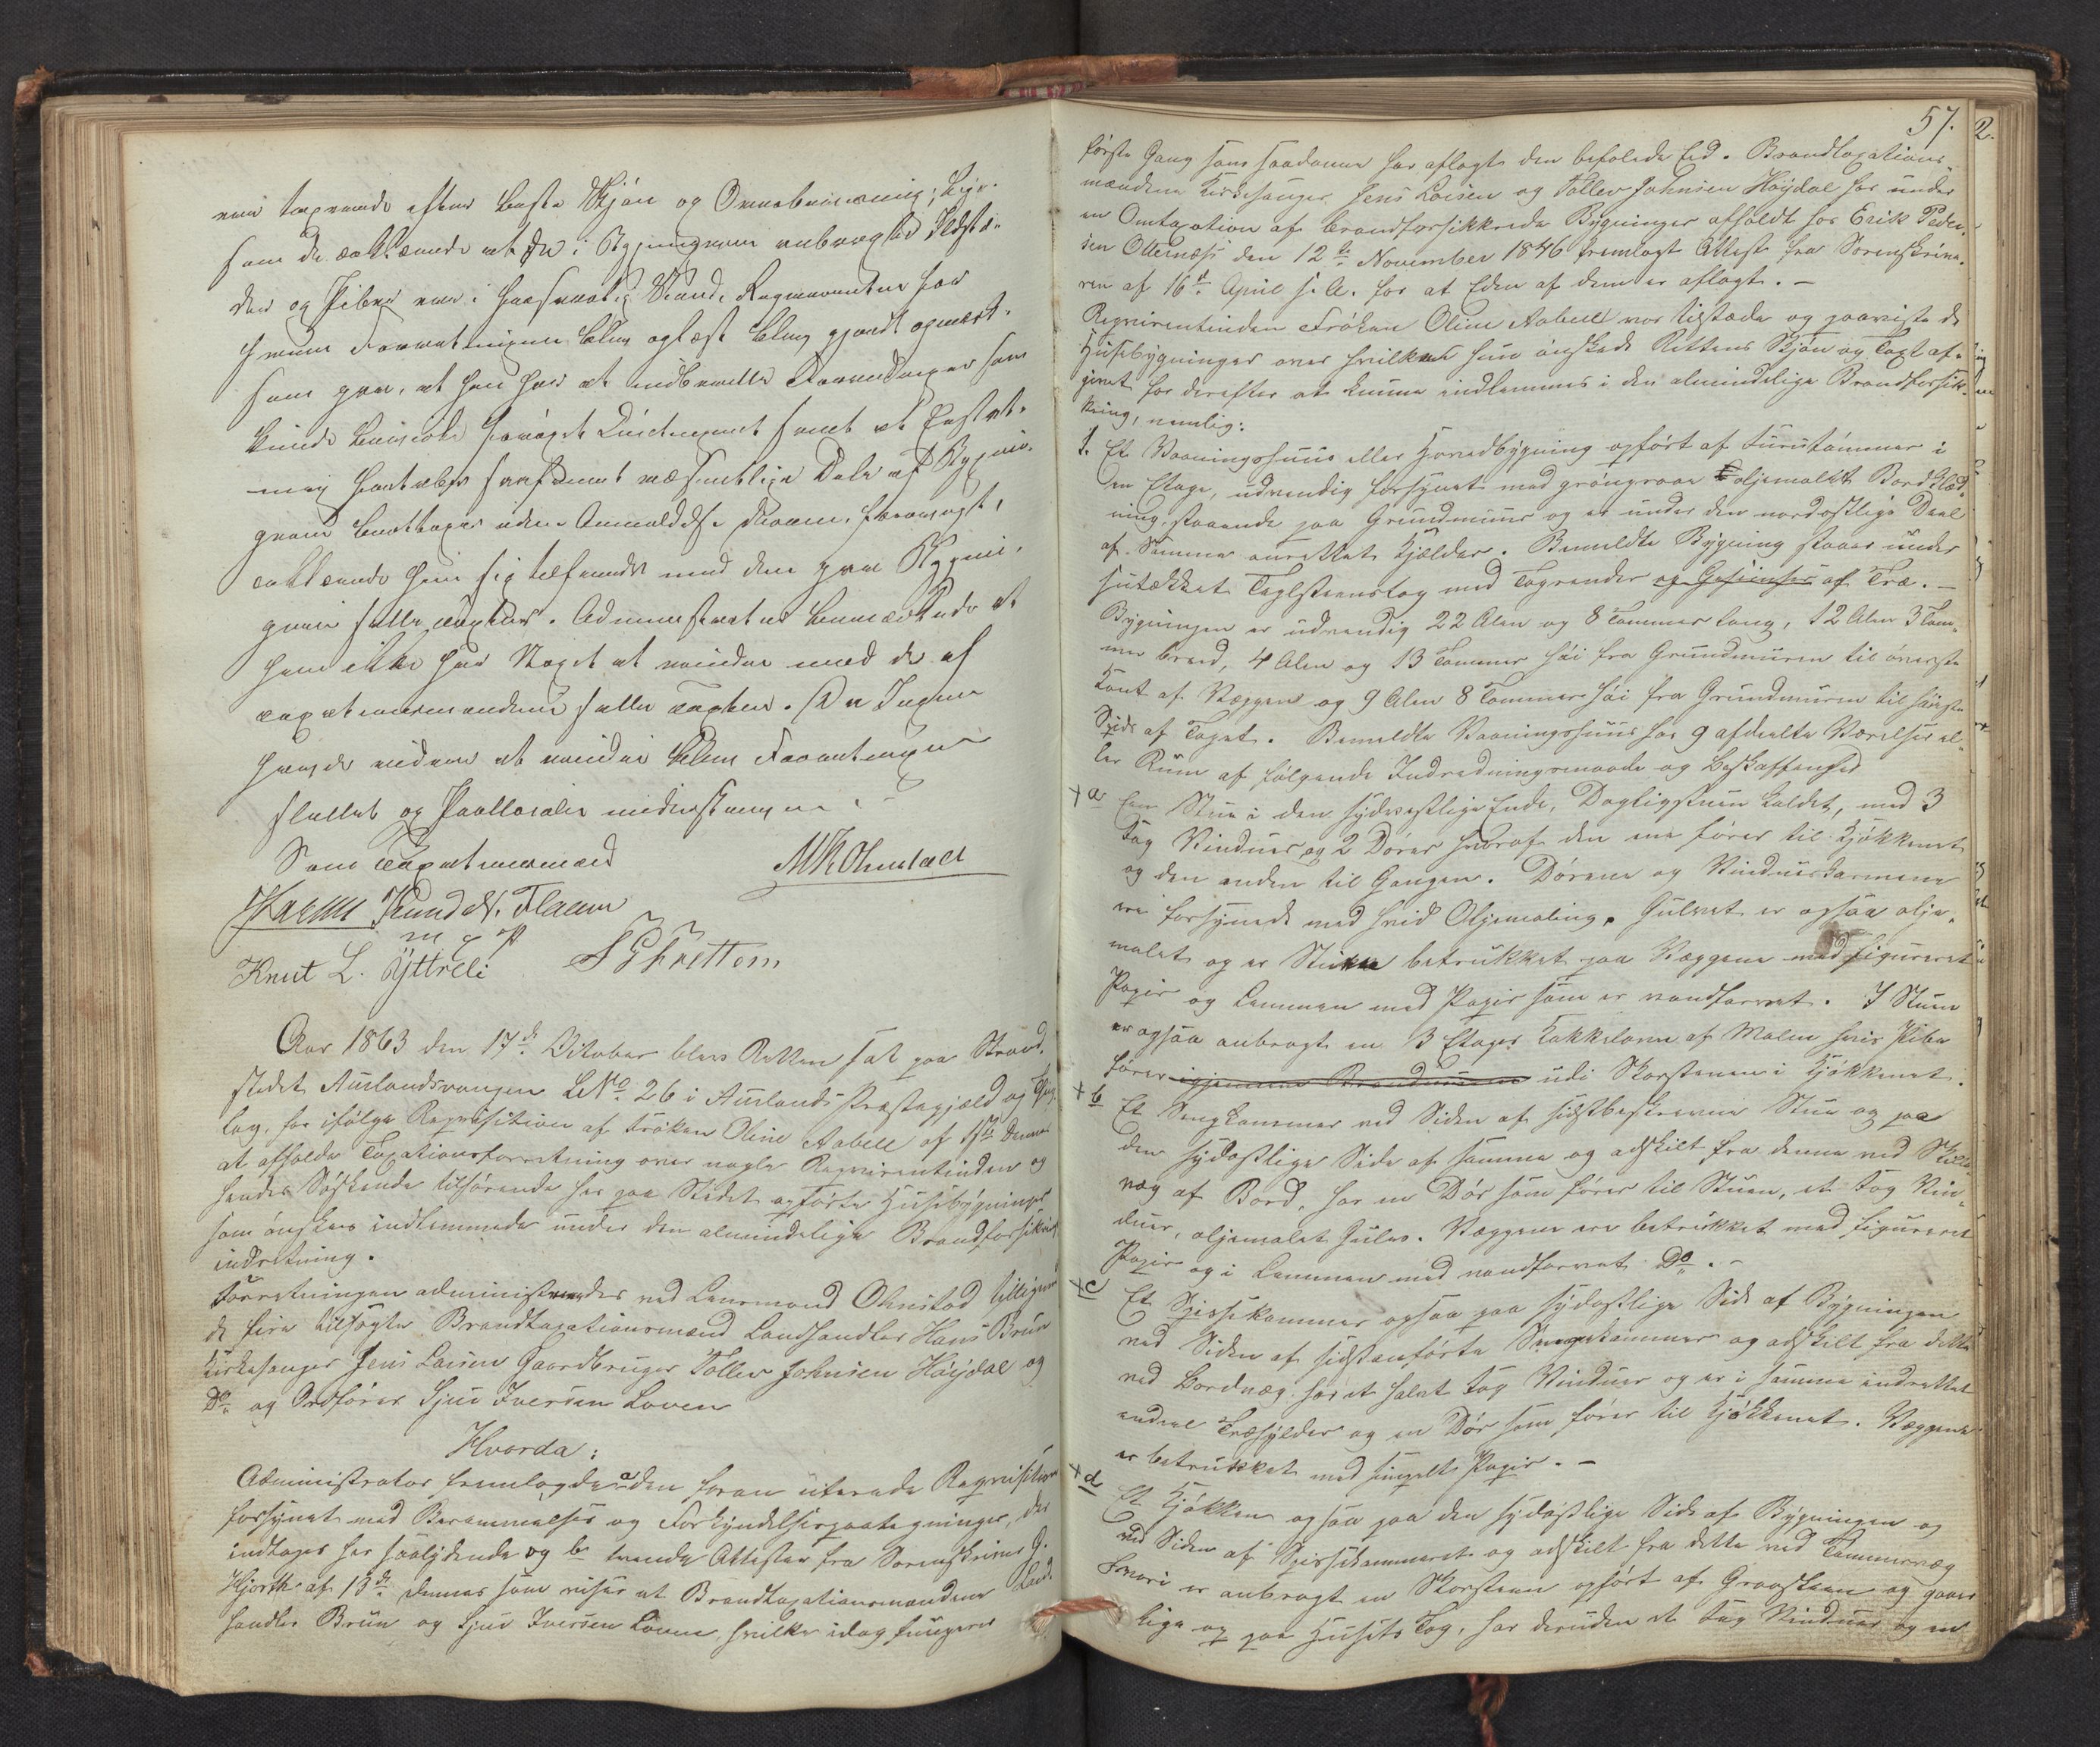 nem taxerende efter bedste Skjøn og Overbeviisning; lige-
som de erklærede at de i Bygningerne anbragte Ildste-
der og Piber var i forsvarlig Stand. Reqvirenten for
hvem Forretningen blev oplæst blev gjort opmerk-
som paa, at han har at indberette Forandringer som
kunde bevirke forøget samt at
hvis væsentlige Dele af Bygnin-
gerne borttages uden Anmeldelse foraarsaget,
erklærede han sig tilfreds med den paa Bygnin-
gerne satte Taxter. Administrator bemærkede at
han ikke har Noget at erindre mod de af
Taxationsmændene satte Taxter. Da Ingen
havde videre at erindre blev Forretningen
sluttet og Protocolen underskreven.
Som Taxationsmænd MKOhnstad
Knud N. Flaam
m f P
Knut L. Yttreli
Aar 1863 den 17de October blev Retten sat paa Strand-
stedet Aurlandsvangen L.No 26 i Aurlands Præstegjæld og Thing-
lag, for ifølge Reqvisition af Frøken Oline Aabell af 1ste dennes
at afholde Taxationsforretning over nogle Reqvirentinden og
hendes Søskende tilhørende her paa Stedet opførte Husebygninger
som ønskes indlemmede under den almindelige Brandforsikrings-
indretning.
Forretningen administreredes ved Lensmand Ohnstad tilligemed
de fire tilsagte Brandtaxationsmænd Landhandler Hans Brun
Kirkesanger Jens Larsen Gaardbruger Tollev Johnsen Høydal og
Do og Ordfører Sjur Iversen Loven
Hvorda:
Administrator fremlagde a den foran citerede Reqvisition
forsynet med Berammelses og Forkyndelsespaategninger, der
indtages her saalydende og b trende Attester fra Sorenskriver G.
Hjorth af 13de dennes som viser at Brandtaxationsmændene Land-
handler Brun og Sjur Iversen Loven, hvilke idag fungerer
57.
første Gang som saadanne har aflagt den befalede Ed. Brandtaxations-
mændene Kirkesanger Jens Larsen og Tollev Johnsen Høydal har under
en Omtaxation af brandforsikkrede Bygninger afholdt hos Erik Peder-
sen Otternæss den 12te November 1846 fremlagt Attest fra Sorenskrive-
ren af 16de April s. A. for at Eden af dem er aflagt. -
Reqvirentinden Frøken Oline Aabell var tilstæde og paaviste de
Husebygninger over hvilke hun ønskede Rettens Skjøn og Taxt af-
givet for derefter at kunne indlemmes i den almindelige Brandforsik-
kring, nemlig:
1. Et Vaaningshuus eller Hovedbygning opført af Furutømmer i
en Etage, udvendig forsynet med graagrøn oljemalet Bordklæd-
ning, staaende paa Grundmuur og er under den nordostlige Deel
af Samme anrettet Kjælder. Bemeldte Bygning staaer under
hutækket Teglsteenstag med Tagrender og Gesimser af Træ. -
Bygningen er udvendig 22 Alen og 8 Tommer lang, 12 Alen 3 Tom-
mer breed, 4 Alen og 13 Tommer høi fra Grundmuren til øverste
Kant af Væggen og 9 Alen 8 Tommer høi fra Grundmuren til høieste
Side af Taget. Bemeldte Vaaningshuus har 9 afdeelte Værelser el-
ler Rum af følgende Indredningsmaade og Beskaffenhed
+ a En Stue i den sydvestlige Ende, Dagligstuen kaldet, med 3
Fag Vinduer og 2 Døre hvoraf den ene fører til Kjøkkenet
og den anden til Gangen. Dørene og Vindueskarmene
ere forsynede med hvid Oljemaling. Gulvet er ogsaa olje-
malet og er Stuen betrukket paa Væggene med figureret
Papir og Lemmen med Papir som er vandfarvet. I Stuen
er ogsaa anbragt en 3 Etages Kakkelovn af Malm hvis Pibe
fører igjennem Brandmuren udi Skorstenen i Kjøkkenet.
+ b Et Sengkammer ved Siden af sidstbeskrevne Stue og paa
den sydostlige Side af samme og adskilt fra denne ved Skille-
væg af Bord, har en Dør som fører til Stuen, et Fag Vin-
duer, oljemalet Gulv. Væggene ere betrukket med figureret
Papir og i Lemmen med vandfarvet Do. -
+ c Et Spisekammer ogsaa paa sydostlige Side af Bygningen
ved Siden af sidstanførte Sengekammer og adskilt fra dette
ved Bordvæg har et halvt Fag Vinduer og er i samme indrettet
endeel Træhylder og en Dør som fører til Kjøkkenet. Væggene
er betrukket med simpelt Papir. -
+ d Et Kjøkken ogsaa paa den sydostlige Side af Bygningen og
ved Siden af Spisekammeret og adskilt fra dette ved Tømmervæg
hvori er anbragt en Skorsteen opført af Graasteen og gaaer
lige op paa Husets Tag, har desuden et Fag Vinduer og en